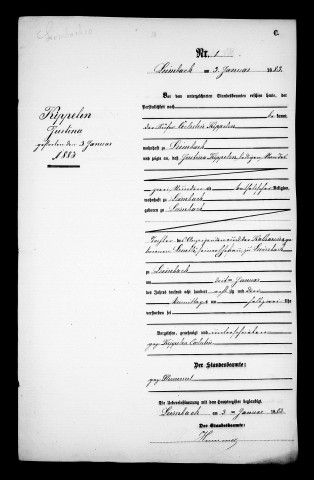 C.
Nr. 1
Leimbach am 3. Januar 1883.
Kippelen
Justina
gestorben den 3 Januar
1883
Vor dem unterzeichneten Standesbeamten erschien heute, der
Persönlichkeit nach
be kannt,
der Küfer Cölestin Kippelen
wohnhaft zu Leimbach
und zeigte an, daß Justina Kippelen, ledigen Standes
zwei Stunden alt, katholischer Religion,
wohnhaft zu Leimbach
geboren zu Leimbach
Tochter des Anzeigenden und der Katharina ge
borenen seiner Ehefrau, zu Leimbach
zu Leimbach
am dritten Januar
des Jahres tausend acht hundert achtzig und drei
Nachmittags um halb zwei Uhr
verstorben sei
Vorgelesen, genehmigt und unterschrieben
gez Kippelen Cölestin
Der Standesbeamte:
gez
Die Uebereinstimmung mit dem Hauptregister beglaubigt
Leimbach am 3 ten Januar 1883.
Der Standesbeamte: